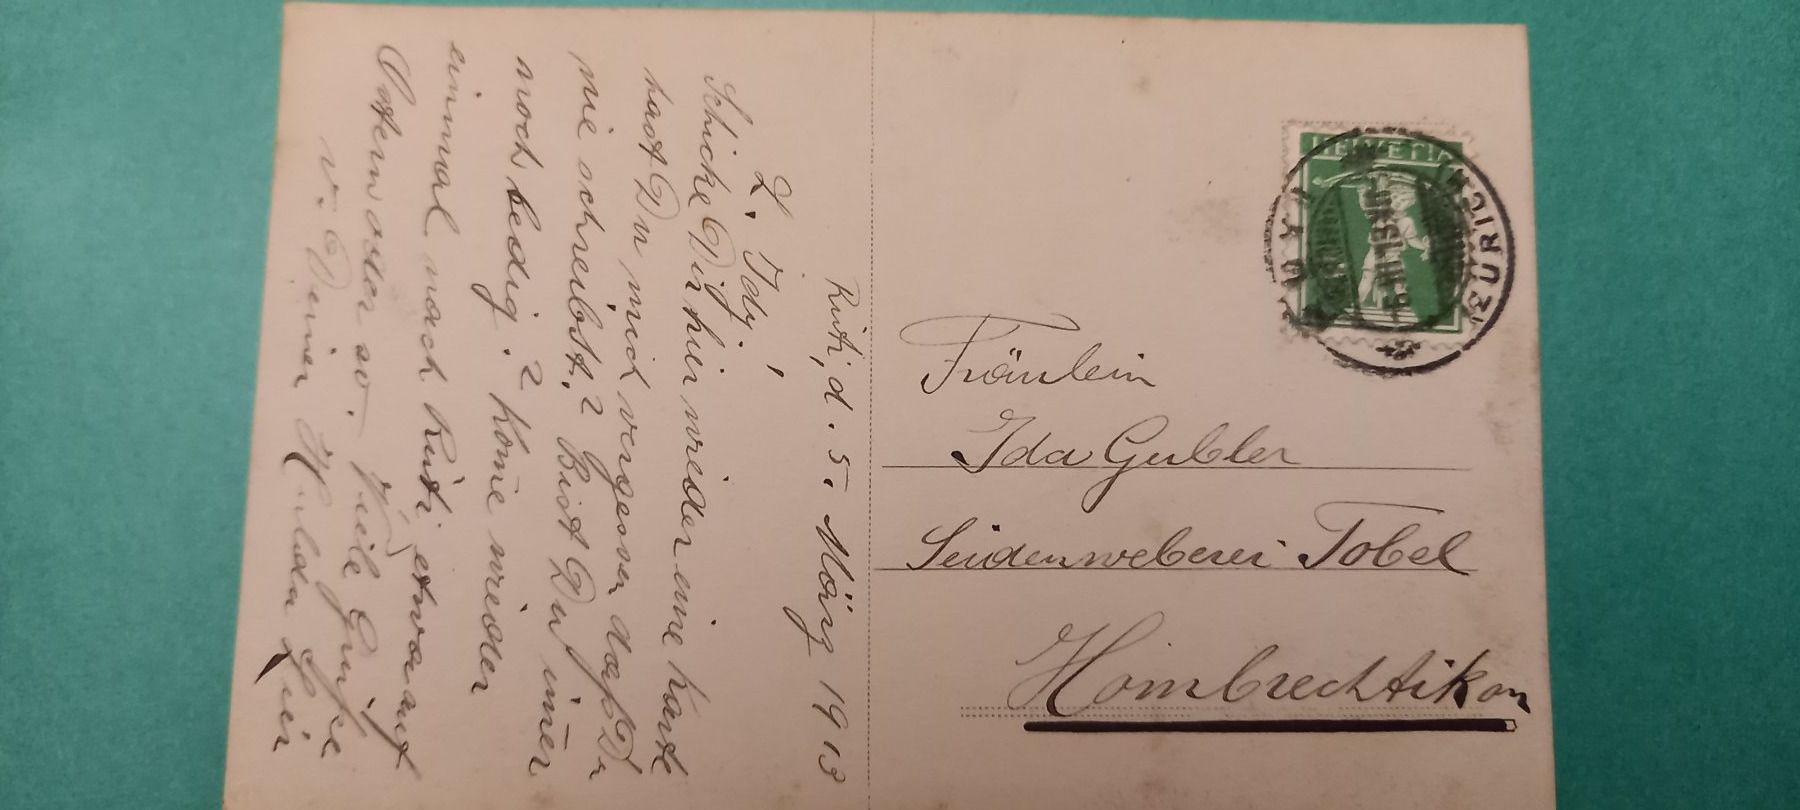 Rüti, d. 5. März 1913
L. Idy,
Schicke Dir hier wieder eine Karte
hast Du mich vergessen daß Du
nie schreibst? Bist Du im̄er
noch ledig.? Kom̄e wieder
einmal nach Rüti, etwa auf
Ostern oder so. Viele Grüße
v. Deiner Hulda
HELVETIA
RÜTI (ZÜRICH)
Fräulein
Ida Gubler
Seidenweberei Tobel
Hombrechtikon